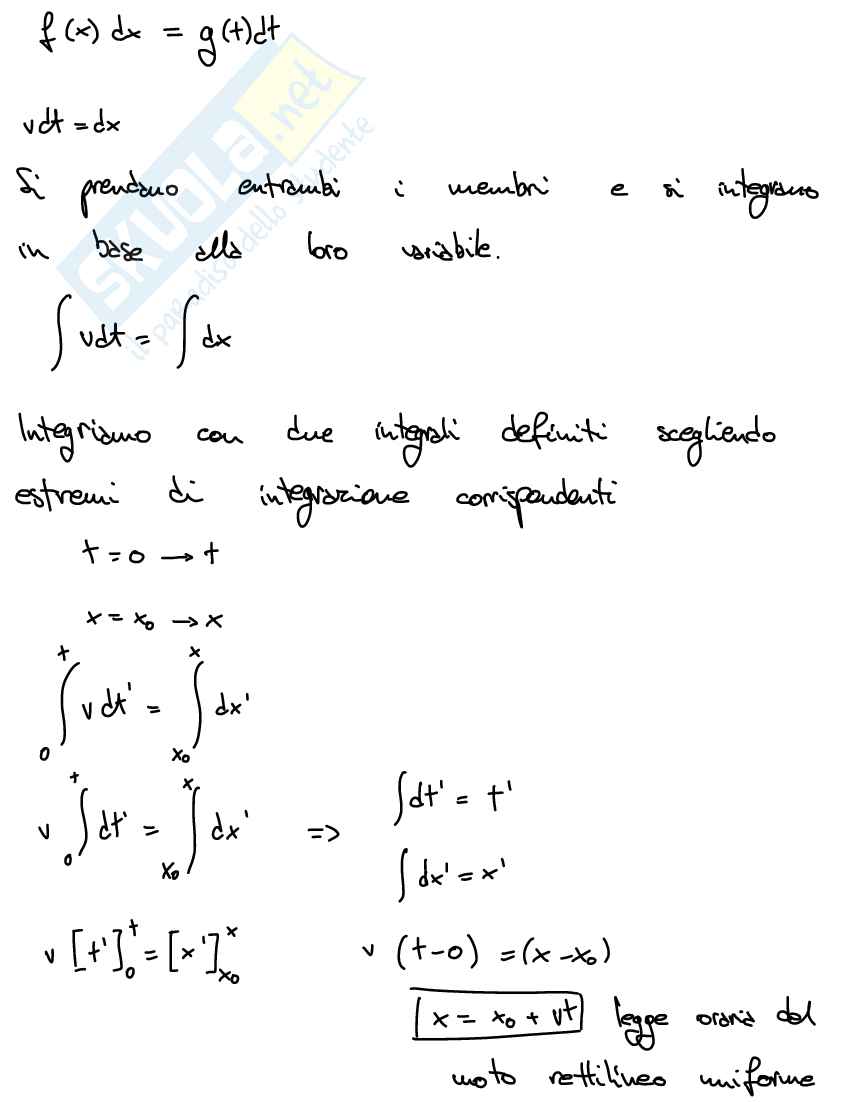 f(x) dx = g(t)dt
vdt = dx
Si prendano entrambi i membri e si integrano
in base alla loro variabile.
∫ vdt = ∫ dx
Integriamo con due integrali definiti scegliendo
estremi di integrazione corrispondenti
t = 0 → t
x = x₀ → x
∫₀ᵗ v dt' = ∫ₓ₀ˣ dx'
v ∫₀ᵗ dt' = ∫ₓ₀ˣ dx' => ∫dt' = t'
∫dx' = x'
v [t']₀ᵗ = [x']ₓ₀ˣ v (t-0) = (x-x₀)
x = x₀ + vt legge oraria del
moto rettilineo uniforme
SKUOLA.net
il paradiso dello studente